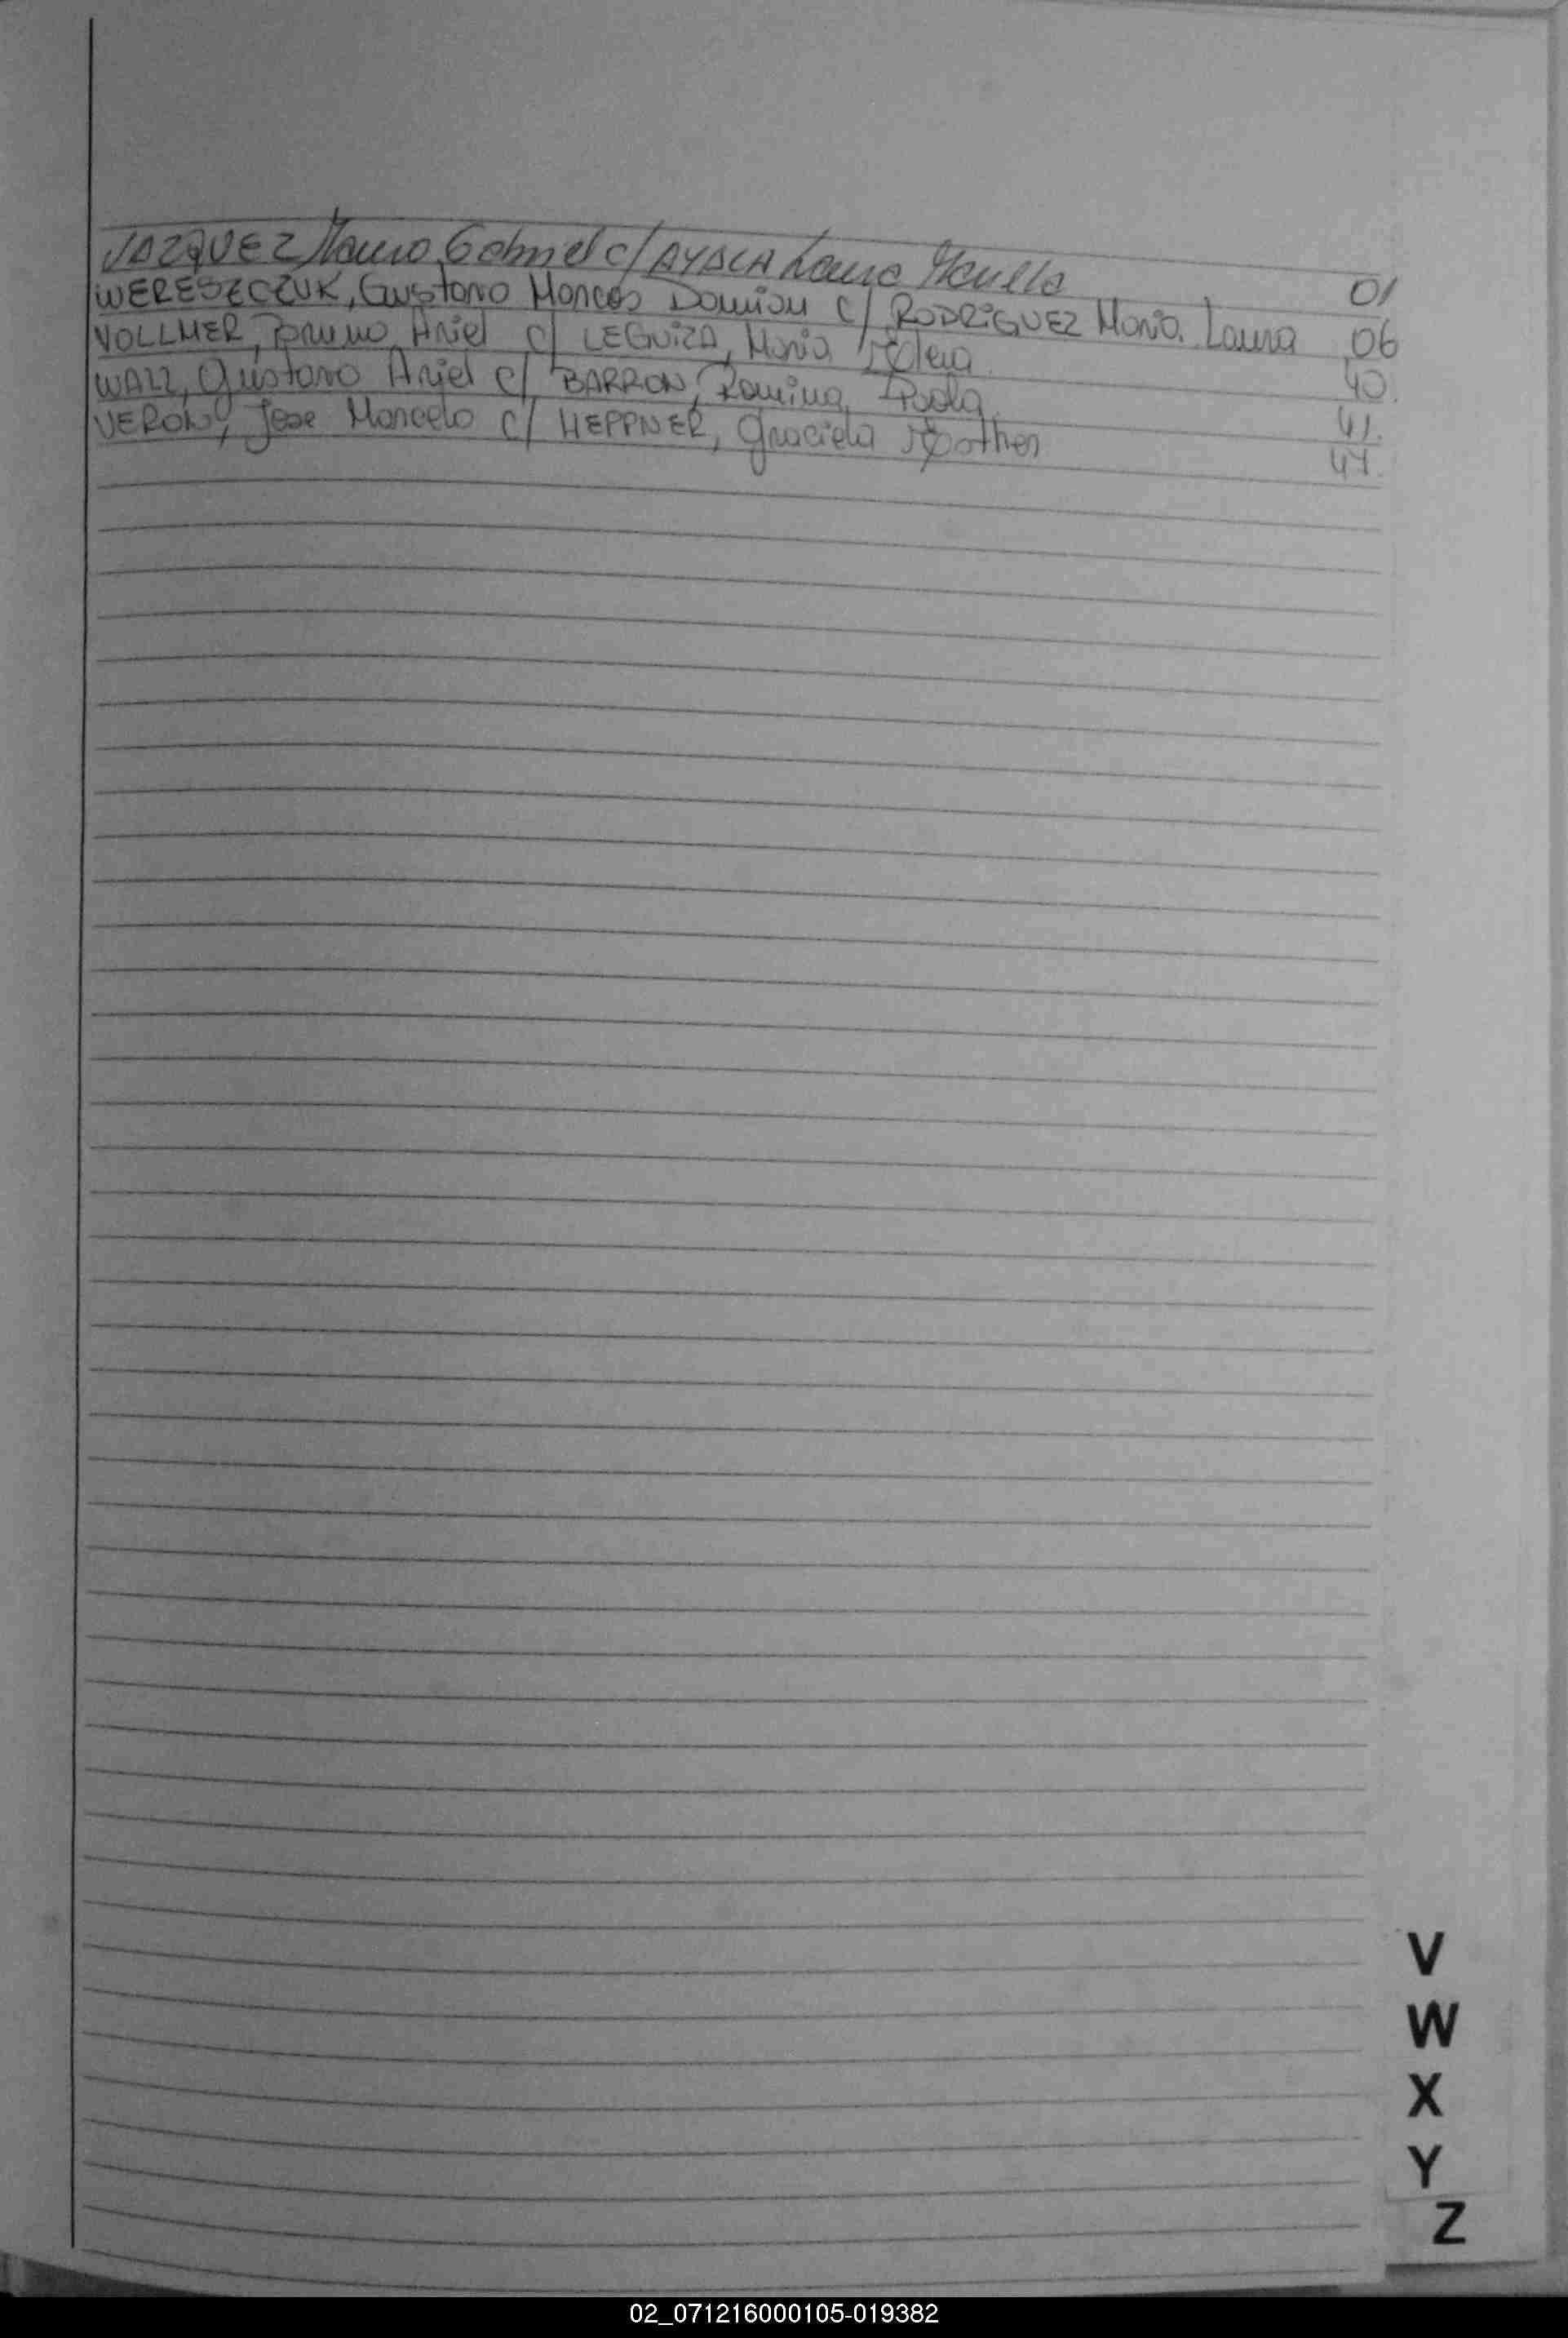 VAZQUEZ Mauro Gabriel c/ AYALA Laura 01
WERESZCZUK, Gustavo Marcos Damian c/ RODRiGUEZ Maria Laura 06
VOLLMER, Bruno Ariel c/ LEGUiZA, Maria 40.
WALL, Gustavo Ariel c/ BARRON, Romina Paola 41.
VERON, Jose Marcelo c/ HEPPNER, Graciela Esther 47.
V
W
X
Y
Z
02_071216000105-019382